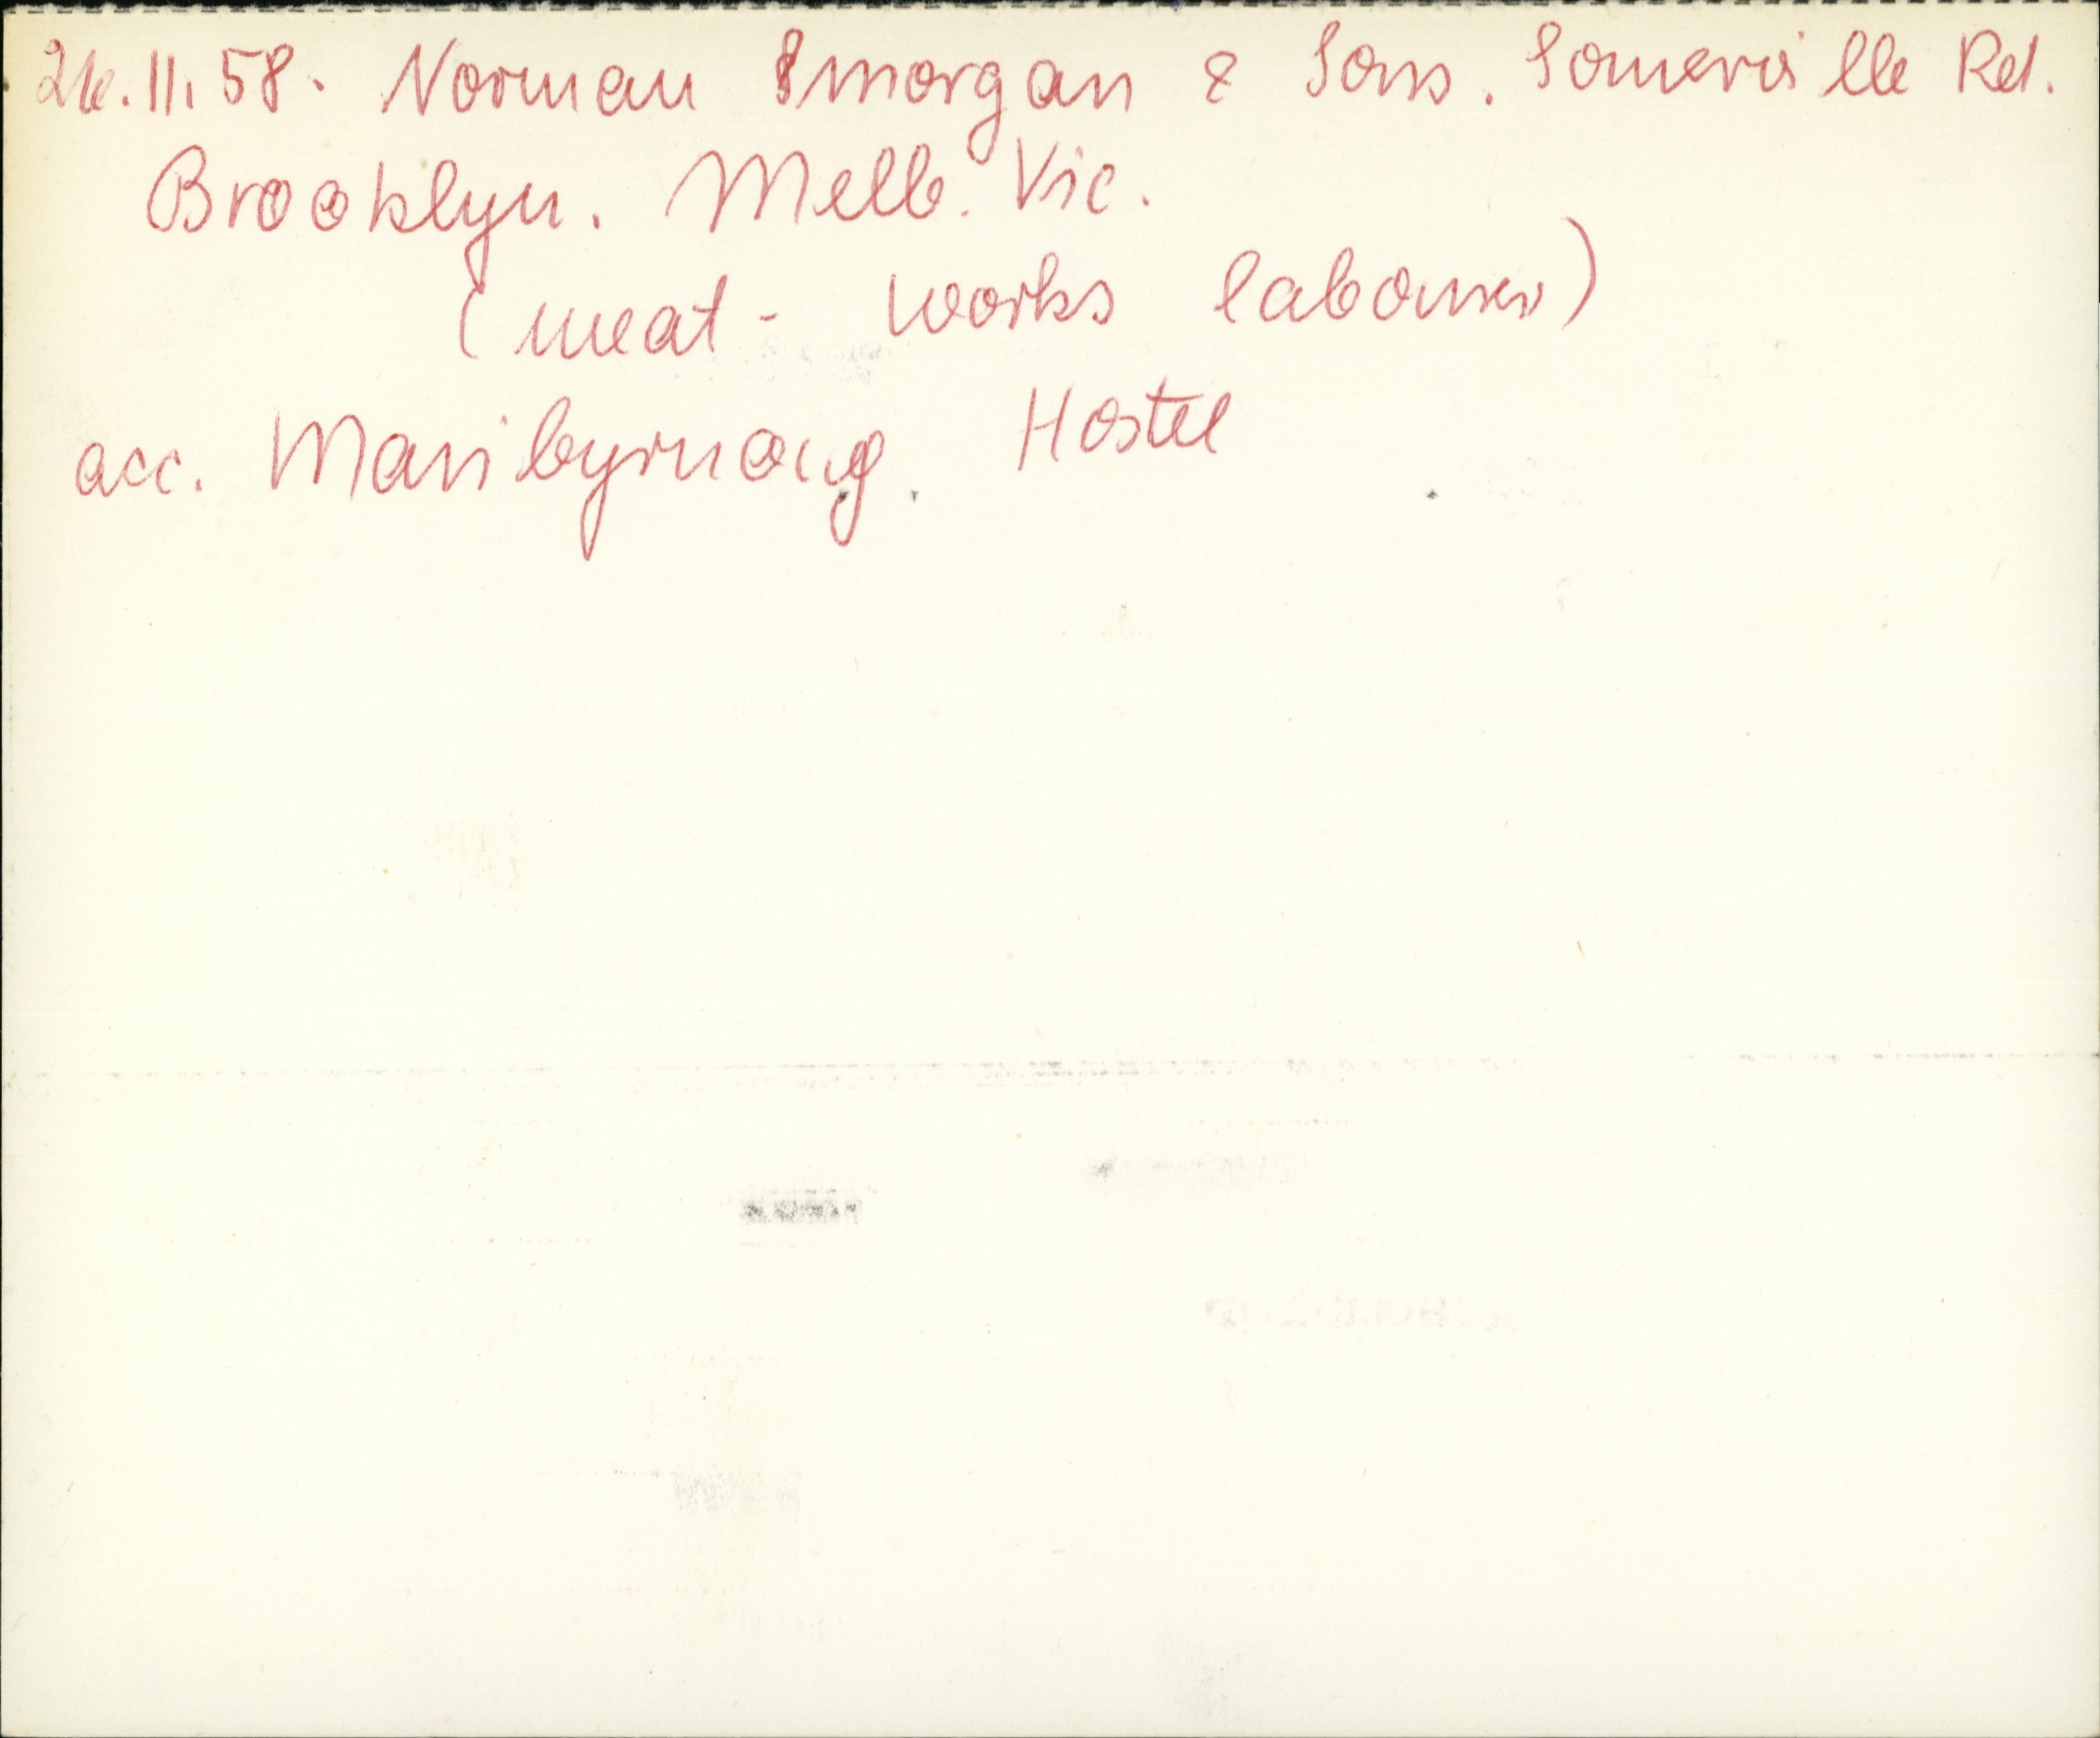 26.11.58. Norman Smorgan & Sons. Somerville Rd.
Brooklyn. Melb. Vic.
(meat - works labourer)
acc. Maribyrnong. Hostel